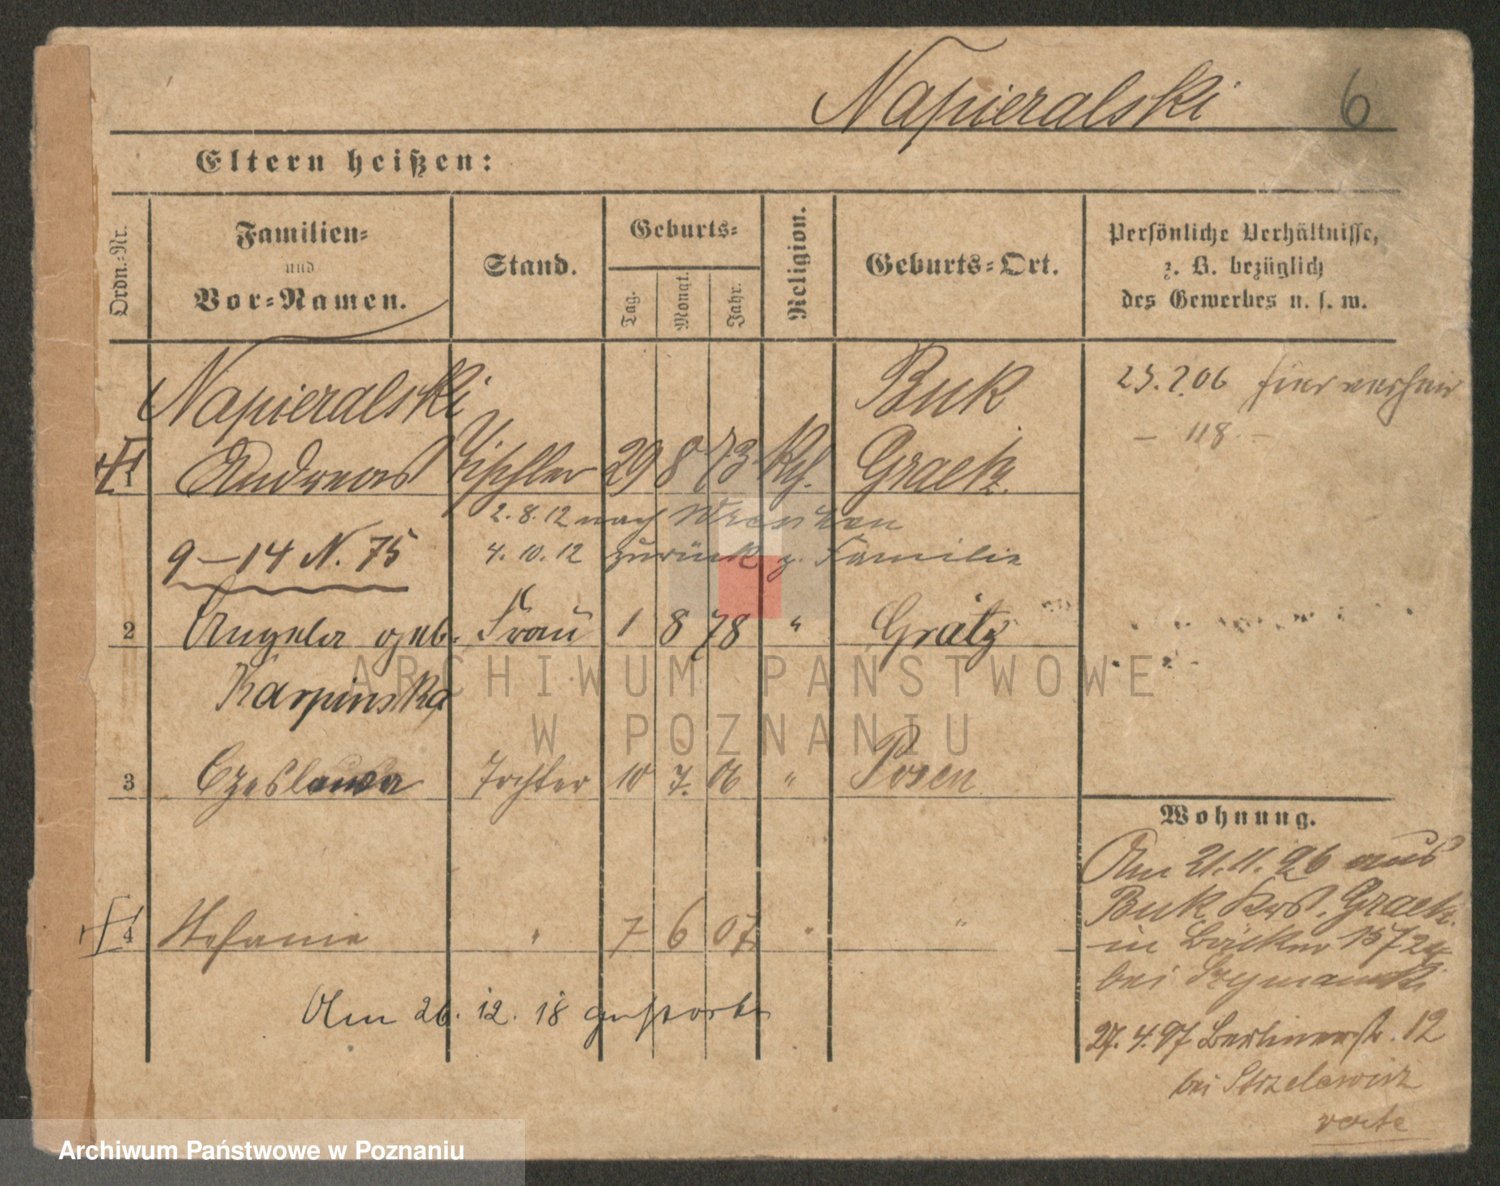 Napieralski 6
Eltern heißen:
Ordn.-Nr.
Familien-
und
Vor-Namen.
Stand.
Geburts-
Tag.
Monat.
Jahr.
Religion.
Geburts-Ort.
Persönliche Verhältnisse,
z. B. bezüglich
des Gewerbes u. s. w.
Napieralski Buk
1 Andreas Tischler 29 8 73 Kth. Graetz
25. 06 hier verheir
- 118 -
2.8.12 nach Wreschen
9-14 N. 75 4.10.12 zurück z. Familie
2 Angela geb. Frau 1 8 78 " Grätz
Karpinska
ARCHIWUM PAŃSTWOWE
W POZNANIU
3 Czeslawa Tochter 10 7. 06 " Posen
4 Stefanie " 7 6 07 " "
Am 26.12.18 gestorben
Wohnung.
Am 21.11.96 aus
Buk Krs. Graetz
in Bäcker 15/24
bei Szymanski
27.4.97 Berlinerstr. 12
bei Strzelewicz
verte
Archiwum Państwowe w Poznaniu